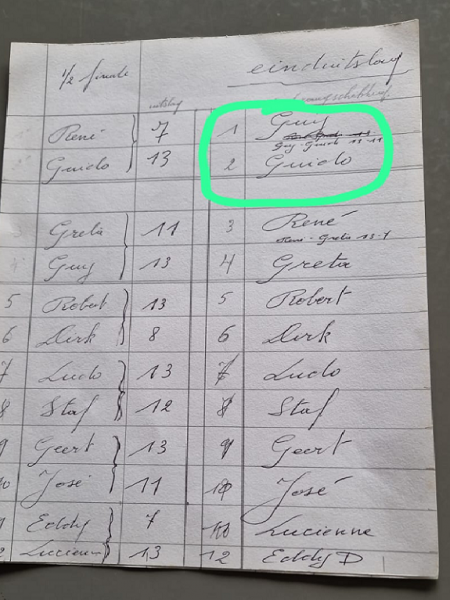 1/2 finale einduitslag
uitslag
René 7 1 Guy
Guy-Guido 13-11
Guido 13 2 Guido
Greta 11 3 René
René-Greta 13-7
Guy 13 4 Greta
5 Robert 13 5 Robert
6 Dirk 8 6 Dirk
7 Ludo 13 7 Ludo
8 Staf 12 8 Staf
9 Geert 13 9 Geert
10 José 11 10 José
Eddy 7 Lucienne
Lucienn 13 12 Eddy D